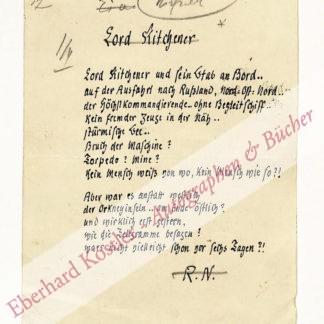 1/4
Lord Kitchener
Lord Kitchener und sein Stab an Bord..
auf der Ausfahrt nach Rußland, Nord-Ost-Nord...
der Höchstkommandierende.. ohne Begleitschiff..
Kein fremder Zeuge in der Näh..
stürmische See..
Bruch der Maschine?
Torpedo? Mine?
Kein Mensch weiß von wo, kein Mensch wie so?!
Aber war es anstatt westlich
der Orkneyinseln.. am Ende östlich?
und wirklich erst gestern,
wie die Telegramme besagen?
war's nicht vielleicht schon vor sechs Tagen?!
R. N.
Eberhard Köstler Autographen & Bücher